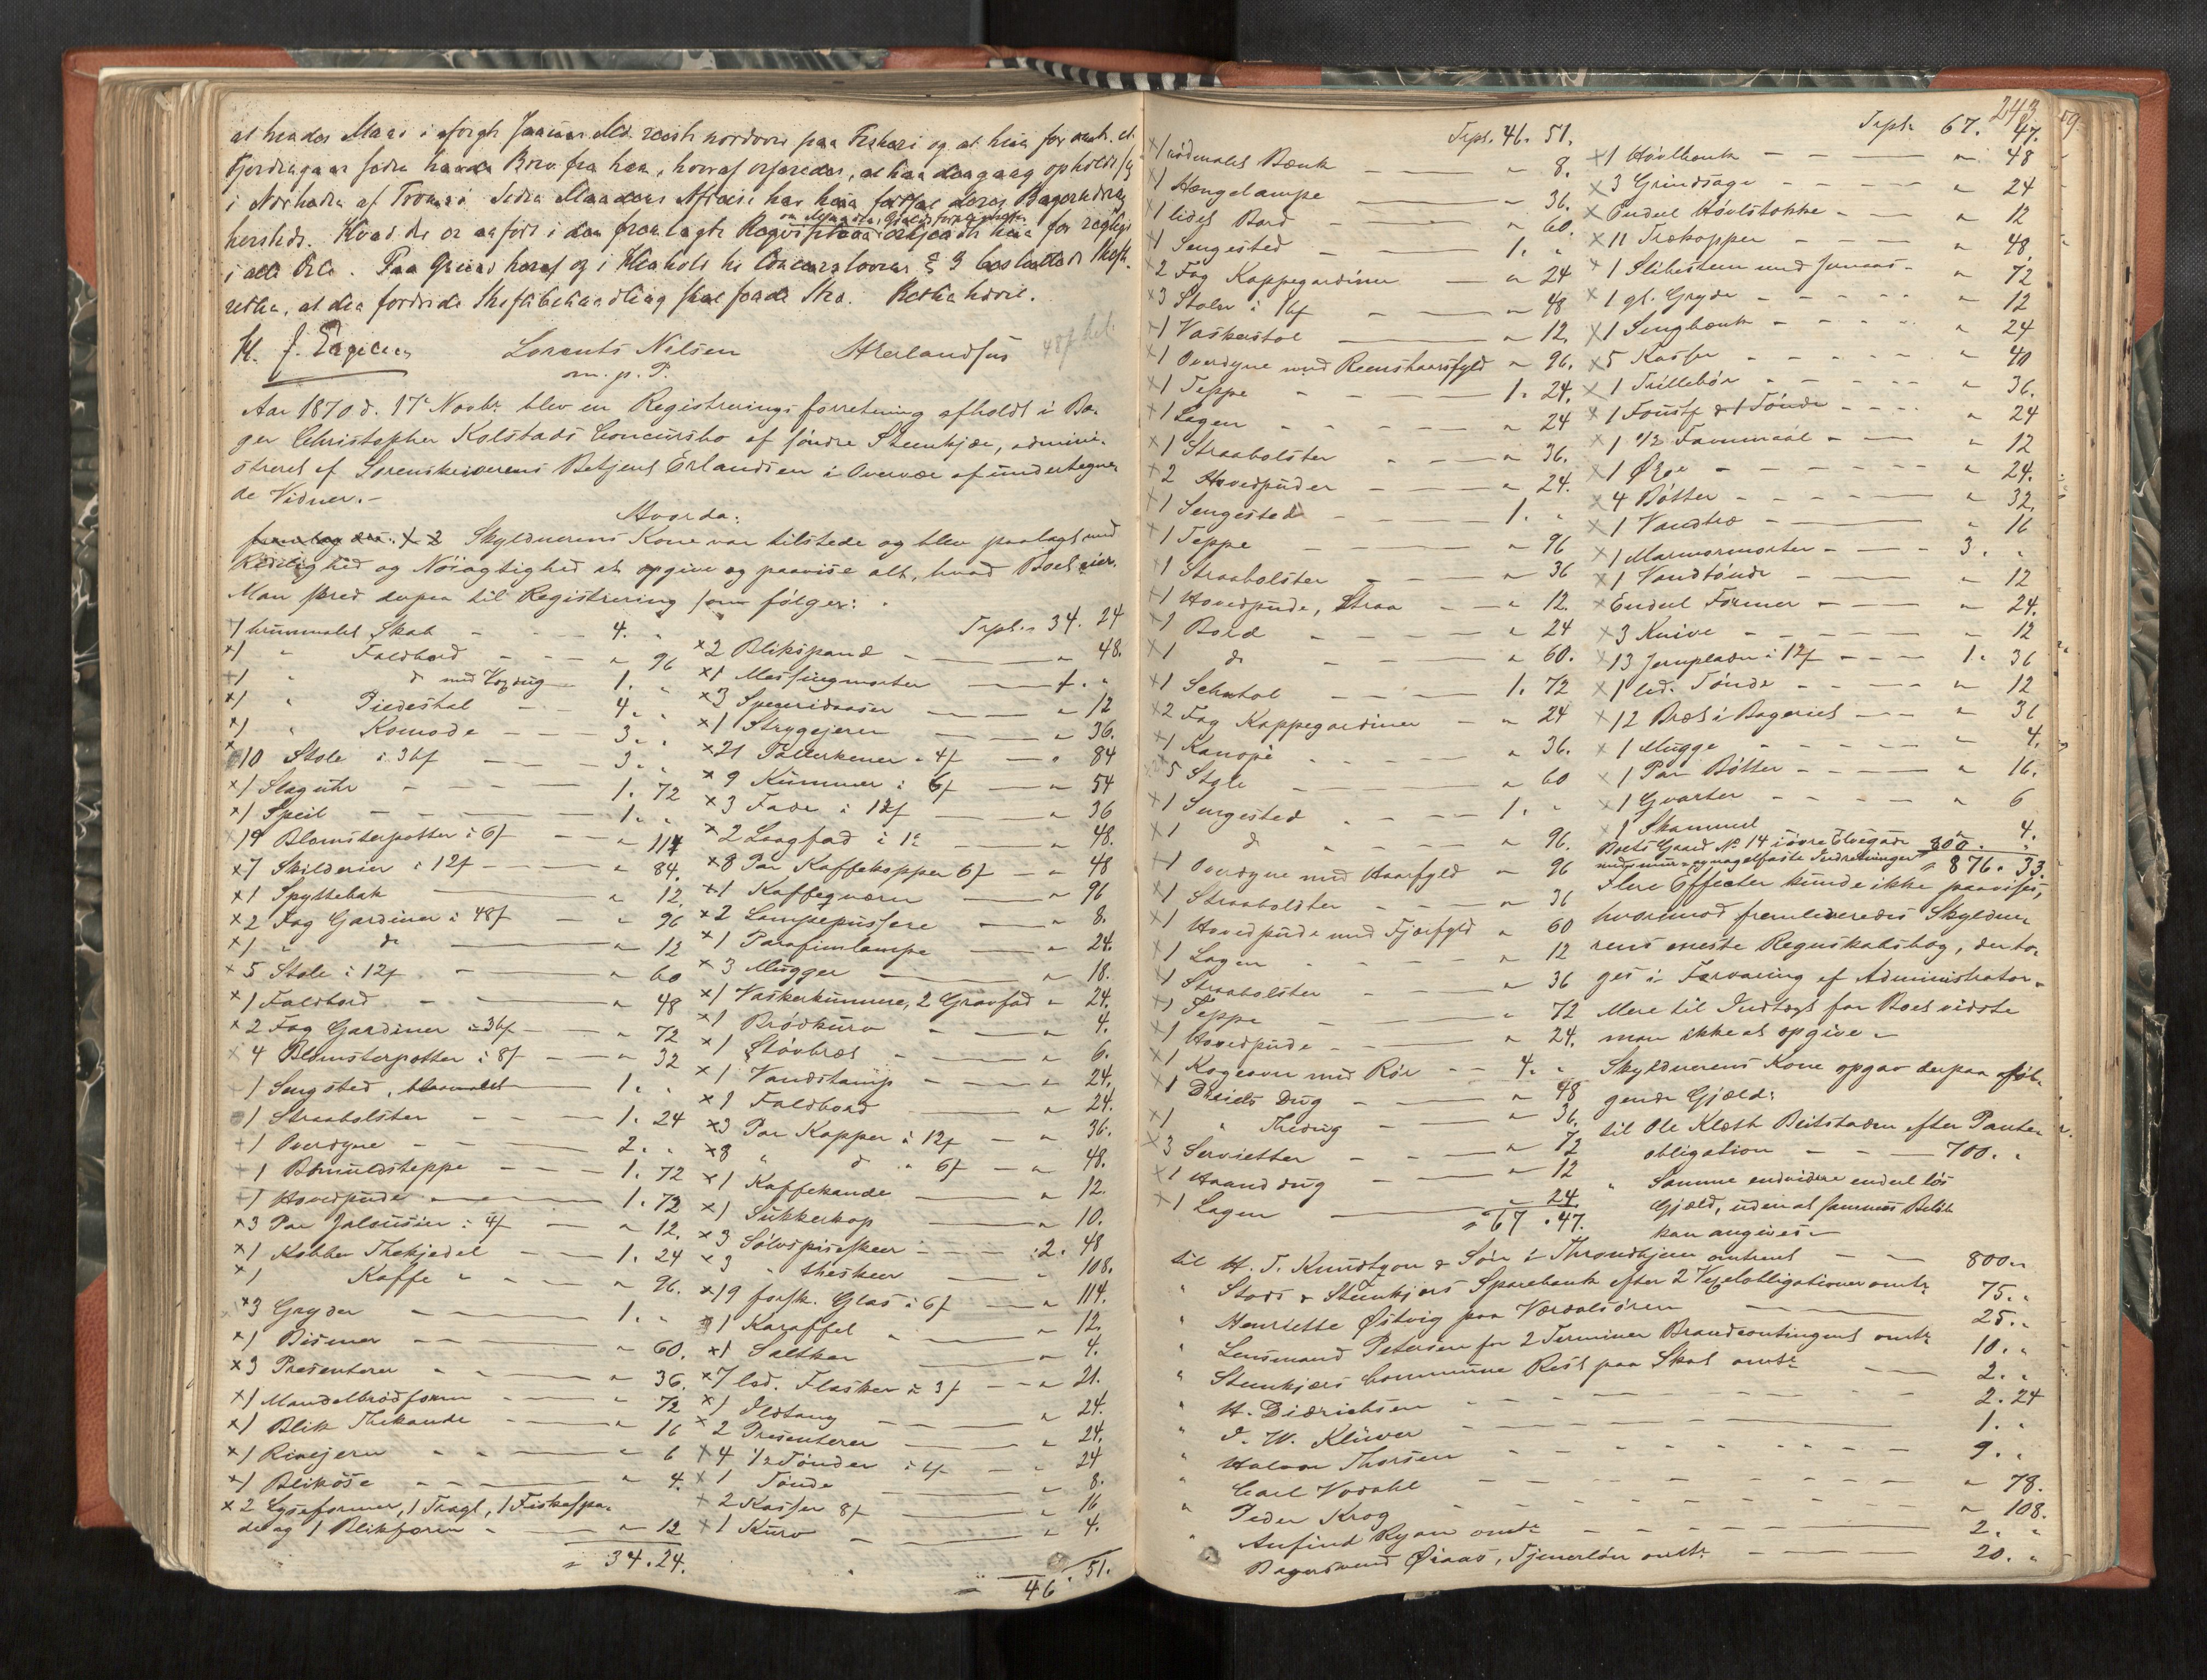 at hendes Mand i afvigte Januar Md. reiste nordover paa Fiskeri og at hun for omtr. et
Fjerdingaar siden havde Brev fra ham, hvoraf erfaredes, at han dengang opholdt sig
i Nærheden af Tromsø. Siden Mandens Afreise har hun fortsat deres Bagerbedrift
hersteds. Hvad der er anført i den fremlagte Requisition
om Mandens Gjældsforpligtelser erkjendte hun for rigtigt
i alle Dele. Paa Grund heraf og i Henhold til Concurslovens § 3 besluttede Skift-
retten, at den fordrede Skiftebehandling skal finde Sted. Retten hævet.
H. J. Lorents Nilsen AErlandsen
m. p. P.
48 f bet.
Aar 1870 d. 17de Novbr. blev en Registreringsforretning afholdt i Ba-
ger Christopher Kolstads Concursbo af søndre Steenkjær, admini-
streret af Sorenskriverens Betjent Erlandsen i Overvær af undertegne-
de Vidner.-
Hvorda:
Skyldnerens Kone var tilstede og blev paalagt med
Redelighed og Nøiagtighed at opgive og paavise alt, hvad Boet eier.
Man skred derpaa til Registrering som følger:
1 brunmalet Skab 4. "
1 " Faldbord " 96
1 " do med Voxdug 1. "
1 " Piedestal 4. "
1 " Komode 3. "
10 Stole à 36 f 3. "
1 Slaguhr 1. 72
1 Speil 1. "
19 Blomsterpotter à 6 f " 114
7 Skilderier à 12 f " 84.
1 Spyttebak " 12.
2 Fag Gardiner à 48 f " 96
1 " do " 12
5 Stole à 12 f " 60
1 Faldbord " 48
2 Fag Gardiner à 36 f " 72
4 Blomsterpotter à 8 f " 32
1 Sengested, blaamalet 1. "
1 Straabolster 1. 24
1 Overdyne 2. "
1 Bomuldsteppe 1. 72
1 Hovedpude 1. 72
3 Par Jalousier à 4 f " 12.
1 Kobber Thekjedel 1. 24
1 Kaffe " " 96.
3 Gryder 1. "
1 Bismer " 60.
3 Presenterer " 36.
1 Mandelbrødform " 72
1 Blik Thekande " 16
1 Rivejern " 6
1 Blikøse " 4.
2 Lyseformer, 1 Tragt, 1 Fiskespa-
de og 1 Blikform " 12
" 34. 24.
Trspt. " 34. 24
2 Blikspand " 48.
1 Messingmorter 1. "
3 Speceridaaser " 12
1 Strygejern " 36.
21 Tallerkener à 4 f " 84
9 Kummer à 6 f " 54
3 Fade à 12 f " 36
2 Laagfad " 48.
8 Par Kaffekopper 6 f " 48
1 Kaffeqværn " 96
2 Lampepussere " 8.
1 Parafinlampe " 24.
3 Mugger " 18.
1 Vaskerkumme, 2 Gravfad " 24.
1 Brødkurv " 4.
1 Støvbræt " 6.
1 Vandstamp " 24.
1 Faldbord " 24.
3 Par Kopper à 12 f " 36.
8 " do " 6 f " 48.
1 Kaffekande " 12.
1 Sukkerkop " 10.
3 Sølvspiseskeer 2. 48
3 " theskeer " 108.
19 forsk. Glas à 6 f " 114.
1 Karaffel " 12.
1 Saltkar " 4.
7 led. Flasker à 3 f " 21.
1 Ildtang " 24.
2 Presenterer " 24.
4 1/2 Tønder " 24
1 Tønde " 8.
2 Kasser 8 f " 16
1 Kurv " 4.
" 46. 51.
243.
Trspt. 46. 51.
1 rødmalet Bænk " 8.
1 Hængelampe " 36.
1 lidet Bord " 60.
1 Sengested 1. "
2 Fag Kappegardiner " 24
3 Stole à 16 f " 48
1 Vaskerstol " 12.
1 Overdyne med Reenshaarsfyld " 96.
1 Teppe 1. 24.
1 Lagen " 24
1 Straabolster " 36.
2 Hovedpuder " 24.
1 Sengested 1. "
1 Teppe " 96
1 Straabolster " 36
1 Hovedpude, Straa " 12.
1 Bord " 24
1 do " 60.
1 Schatol 1. 72
2 Fag Kappegardiner " 24
1 Kanope " 36.
5 Stole " 60
1 Sengested 1. "
1 do " 96.
1 Overdyne med Haarfyld " 96
1 Straabolster " 36
1 Hovedpude med Fjærfyld " 60
1 Lagen " 12
1 Straabolster " 36
1 Teppe " 72
1 Hovedpude " 24.
1 Kogeovn med Rør 4. "
1 Dreiels Dug " 48
1 " Thedug " 36.
3 Servietter " 72
1 Haanddug " 12
1 Lagen " 24.
" 67. 47.
Trspt. 67. 47.
1 Høvlbænk " 48
3 Grindsage " 24
Endeel Høvlstokke " 12
11 Trækopper " 48.
1 Slibesteen med " 72
1 gl. Gryde " 12
1 Sengbænk " 24
5 Kasser " 40
1 Trillebør " 36.
1 & 1 Tønde " 24
1 1/2 " 12
1 Øxe " 24.
4 Bøtter " 32.
1 Vandtræ " 16
1 Marmormorter 3. "
1 Vandtønde " 12
Endeel Former " 24.
3 Knive " 12
13 Jernplader à 12 f 1. 36
1 led. Tønde " 12
12 Bræt i Bageriet " 36
1 Mugge " 4.
1 Par Bøtter " 16.
1 Qvarter " 6
1 Skammel " 4.
Boets Gaard No 14 i øvre Elvegade 800. "
med muur- og nagelfaste Indretninger " 876. 33.
Flere Effecter kunde ikke paavises,
hvorimod fremleveredes Skyldne-
rens eneste Regnskabsbog, der to-
ges i Forvaring af Administrator.
Mere til Indtægt for Boet vidste
man ikke at opgive.
Skyldnerens Kone opgav derpaa føl-
gende Gjæld:
til Ole Klæth Beitstaden efter Pante-
obligation 700. "
" Samme endvidere endeel løs
Gjæld, uden at sammes Beløb
kan angives.
til H. T. Knudtzon & Søn i Throndhjem omtrent 800. "
" Stods & Steenkjærs Sparebank efter 2 Vexelobligationer omtr. 75. "
" Henriette Østvig paa Værdalsøren 25. "
" Lensmand Petersen for 2 Terminer Brandcontingent omtr. 10. "
" Steenkjærs Commune Rest paa Skat omtr. 2. "
" H. Didrichsen 2. 24
" J. W. Klüwer 1. "
" Halvor Thorsen 9. "
" Carl Vordahl " 78.
" Peder Krog " 108.
" Anfind Ryan omtr. 2. "
" Bagersvend Øiaas, Tjenerløn omtr. 20. "